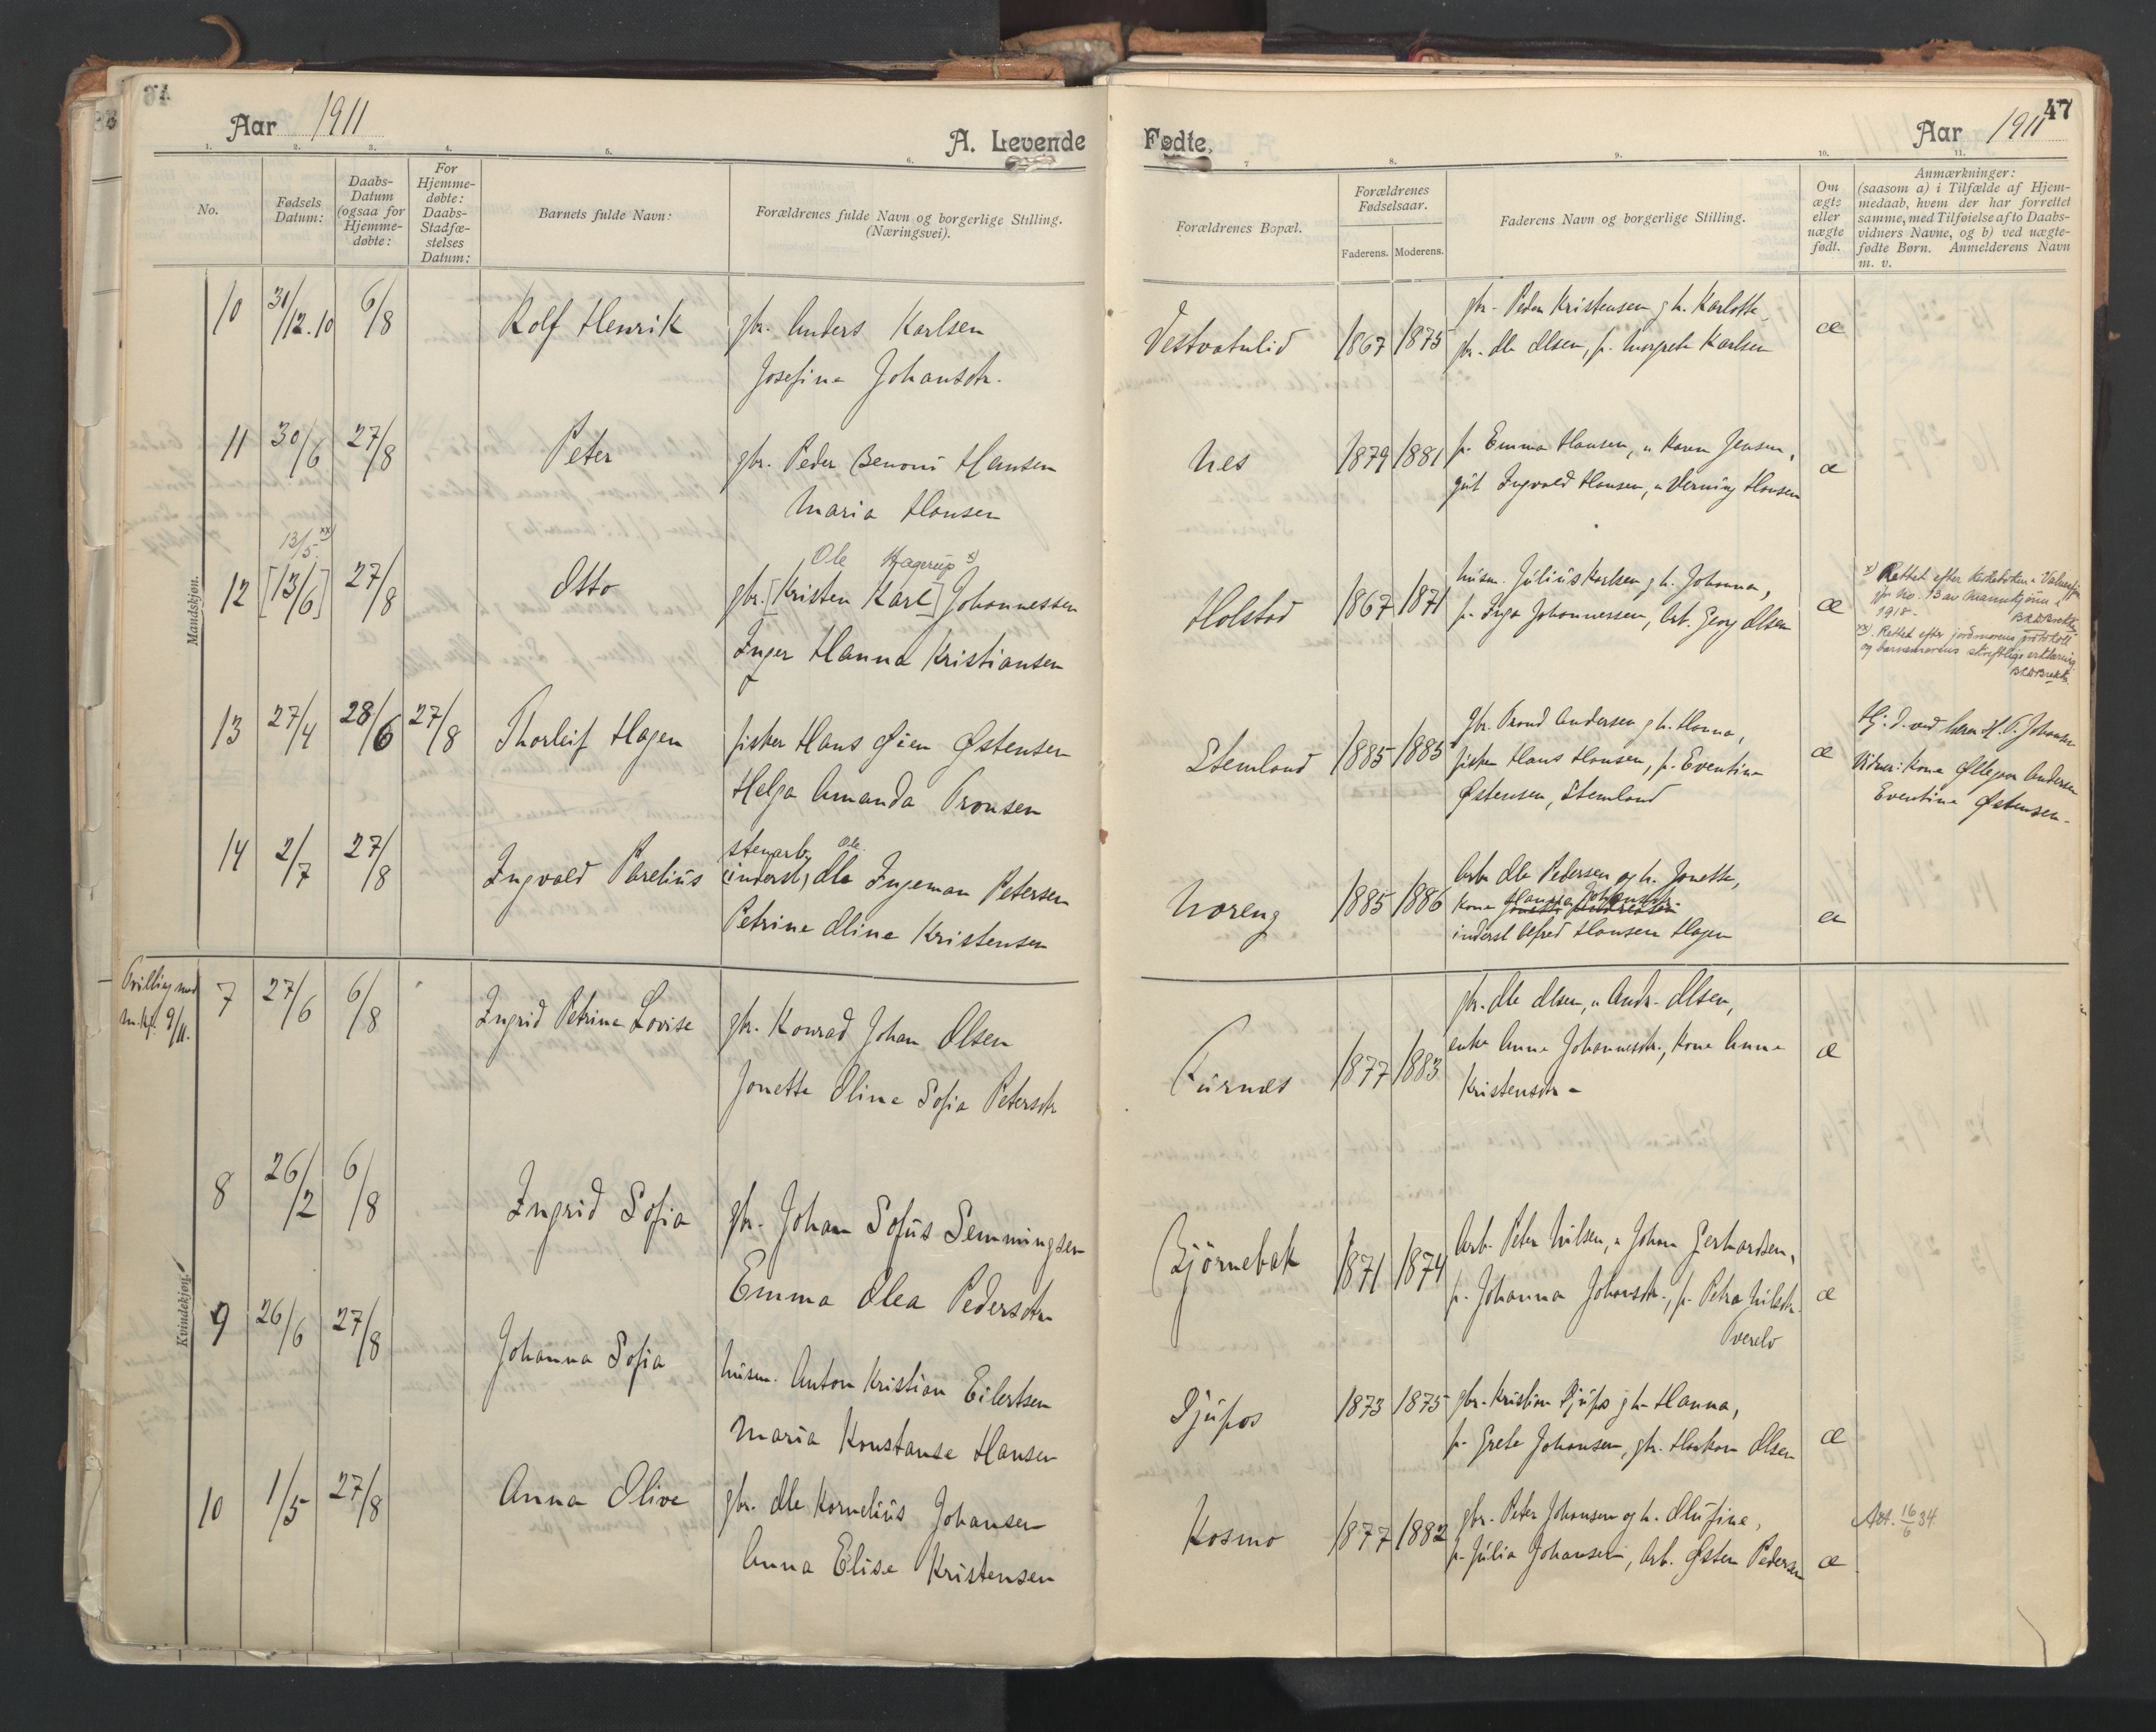 Aar 1911
A. Levende
1. 2. 3. 4. 5. 6.
No.
Fødsels
Datum:
Daabs-
Datum
(ogsaa for
Hjemme-
døbte:
For
Hjemme-
døbte:
Daabs-
Stadfæ-
stelses
Datum:
Barnets fulde Navn:
Forældrenes fulde Navn og borgerlige Stilling.
(Næringsvei).
Mandskjøn.
10 31/12.10 6/8 Rolf Henrik gbr. Anders Karlsen
Josefine Johansdtr.
11 30/6 27/8 Peter gbr. Peder Benoni Hansen
Maria Hansen
13/5 xx) Ole Hagerup x)
12 [13/6] 27/8 Otto gbr. [Kristen Karl] Johannessen
Inger Hanna Kristiansen
13 27/4 28/6 27/8 Thorleif Hagen fisker Hans Øien Østensen
Helga Amanda Tronsen
stenarb. Ole
14 2/7 27/8 Ingvald Parelius (inderst) Ole Ingeman Petersen
Petrine Oline Kristensen
Kvindekjøn.
Tvilling med
m.kj. 9/11.
7 27/6 6/8 Ingrid Petrine Lovise gbr. Konrad Johan Olsen
Jonette Oline Sofie Petersdtr
8 26/2 6/8 Ingrid Sofia gbr. Johan Sofus Semmingsen
Emma Olea Pedersdtr
9 26/6 27/8 Johanna Sofia husm. Anton Kristian Eilertsen
Maria Konstanse Hansen
10 1/5 27/8 Anna Olive gbr. Ole Kornelius Johansen
Anna Elise Kristensen
47
Fødte,
Aar 1911
7 8. 9. 10. 11.
Forældrenes Bopæl.
Forældrenes
Fødselsaar.
Faderens. Moderens.
Faderens Navn og borgerlige Stilling.
Om
ægte
eller
uægte
født.
Anmærkninger:
(saasom a) i Tilfælde af Hjem-
medaab, hvem der har forrettet
samme, med Tilføielse af to Daabs-
vidners Navne, og b) ved uægte-
fødte Børn. Anmelderens Navn
m. v.
gbr. Peder Kristensen g h. Karlotte,
Vestvatnlid 1867 1875 gbr. Ole Olsen, p. Margrete Karlsen æ
Nes 1879 1881 p. Emma Hansen, " Karen Jensen, æ
gut Ingvald Hansen, " Herning Hansen
husm. Julius Karlsen g h. Johanna,
Holstad 1867 1871 p. Inga Johannessen, Arb. Georg Olsen æ
x) Rettet efter kirkeboken i Valnesfjord
for No. 13 av mannkjønn i
1918.
xx). Rettet efter jordmorens protokoll
og barnemorens skriftlige erklæring.
gbr. Trond Andersen g h. Hanna,
Stemland 1885 1885 fisker Hans Hansen, p. Eventine æ
Østensen, Stemland
Hj. d. ved lærer H. T. Johansen
Vidner: Kone Ellegva Andersen
Eventine Østensen.
Arb. Ole Pedersen og h. Jonette,
Noreng 1885 1886 Kone Hanna Johansdtr. æ
inderst Alfred Hansen Hagen
gbr. Ole Olsen, " Andr. Olsen,
Furnes 1877 1883 enke Anne Johannesdtr., Kone Anne æ
Kristensdtr -
Bjørnebak 1871 1874 Arb. Peter Nilsen, " Johan Gerhardsen,
p. Johanna Johansdtr., p. Petra Nilsdtr. æ
Tverelv
Djupos 1873 1875 gbr. Kristian Djupos g h. Hanna,
p. Grete Johansen, gbr. Haakon Olsen æ
Kosmo 1877 1882 gbr. Peter Johansen og h. Olufine,
p. Julia Johansen, Arb. Østen Pedersen æ
Att. 16/6 34